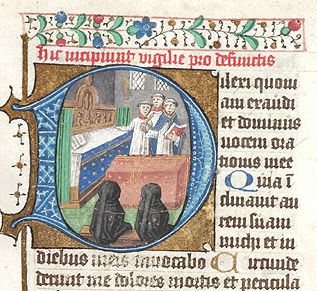 Hic incipiunt vigilie pro defunctis
Dilexi quoni
am exaudi
et dominus
vocem ora
tionis mee
Quia ī
clinavit au
rem suam
michi et in
diebus meis invocabo Circunde
derunt me dolores mortis et pericula